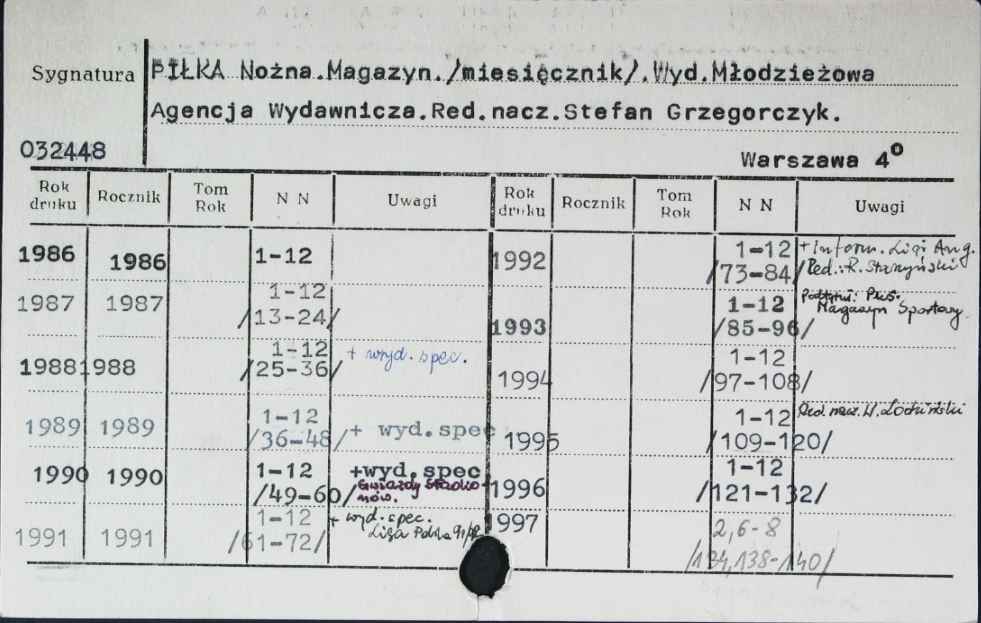 Sygnatura PIŁKA Nożna.Magazyn./miesięcznik/.Wyd.Młodzieżowa
Agencja Wydawnicza.Red.nacz.Stefan Grzegorczyk.
032448 Warszawa 4°
Rok druku Rocznik Tom Rok N N Uwagi Rok druku Rocznik Tom Rok N N Uwagi
1986 1986 1-12
1987 1987 1-12
/13-24/
1988 1988 1-12 + wyd. spec.
/25-36/
1989 1989 1-12
/36-48/ + wyd.spec
1990 1990 1-12 +wyd.spec
/49-60/ Gwiazdy Stadionów.
1991 1991 1-12 + wyd. spec.
/61-72/ Liga Polska 91/92
1992 1-12 + Inform. Ligi Ang.
/73-84/ Red.: R. Starzyński
1993 1-12 Podtytuł: Magazyn Sportowy.
/85-96/
1994 1-12
/97-108/
1995 1-12 Red. nacz. W. Łochiński
/109-120/
1996 1-12
/121-132/
1997 2,6-8
/134,138-140/